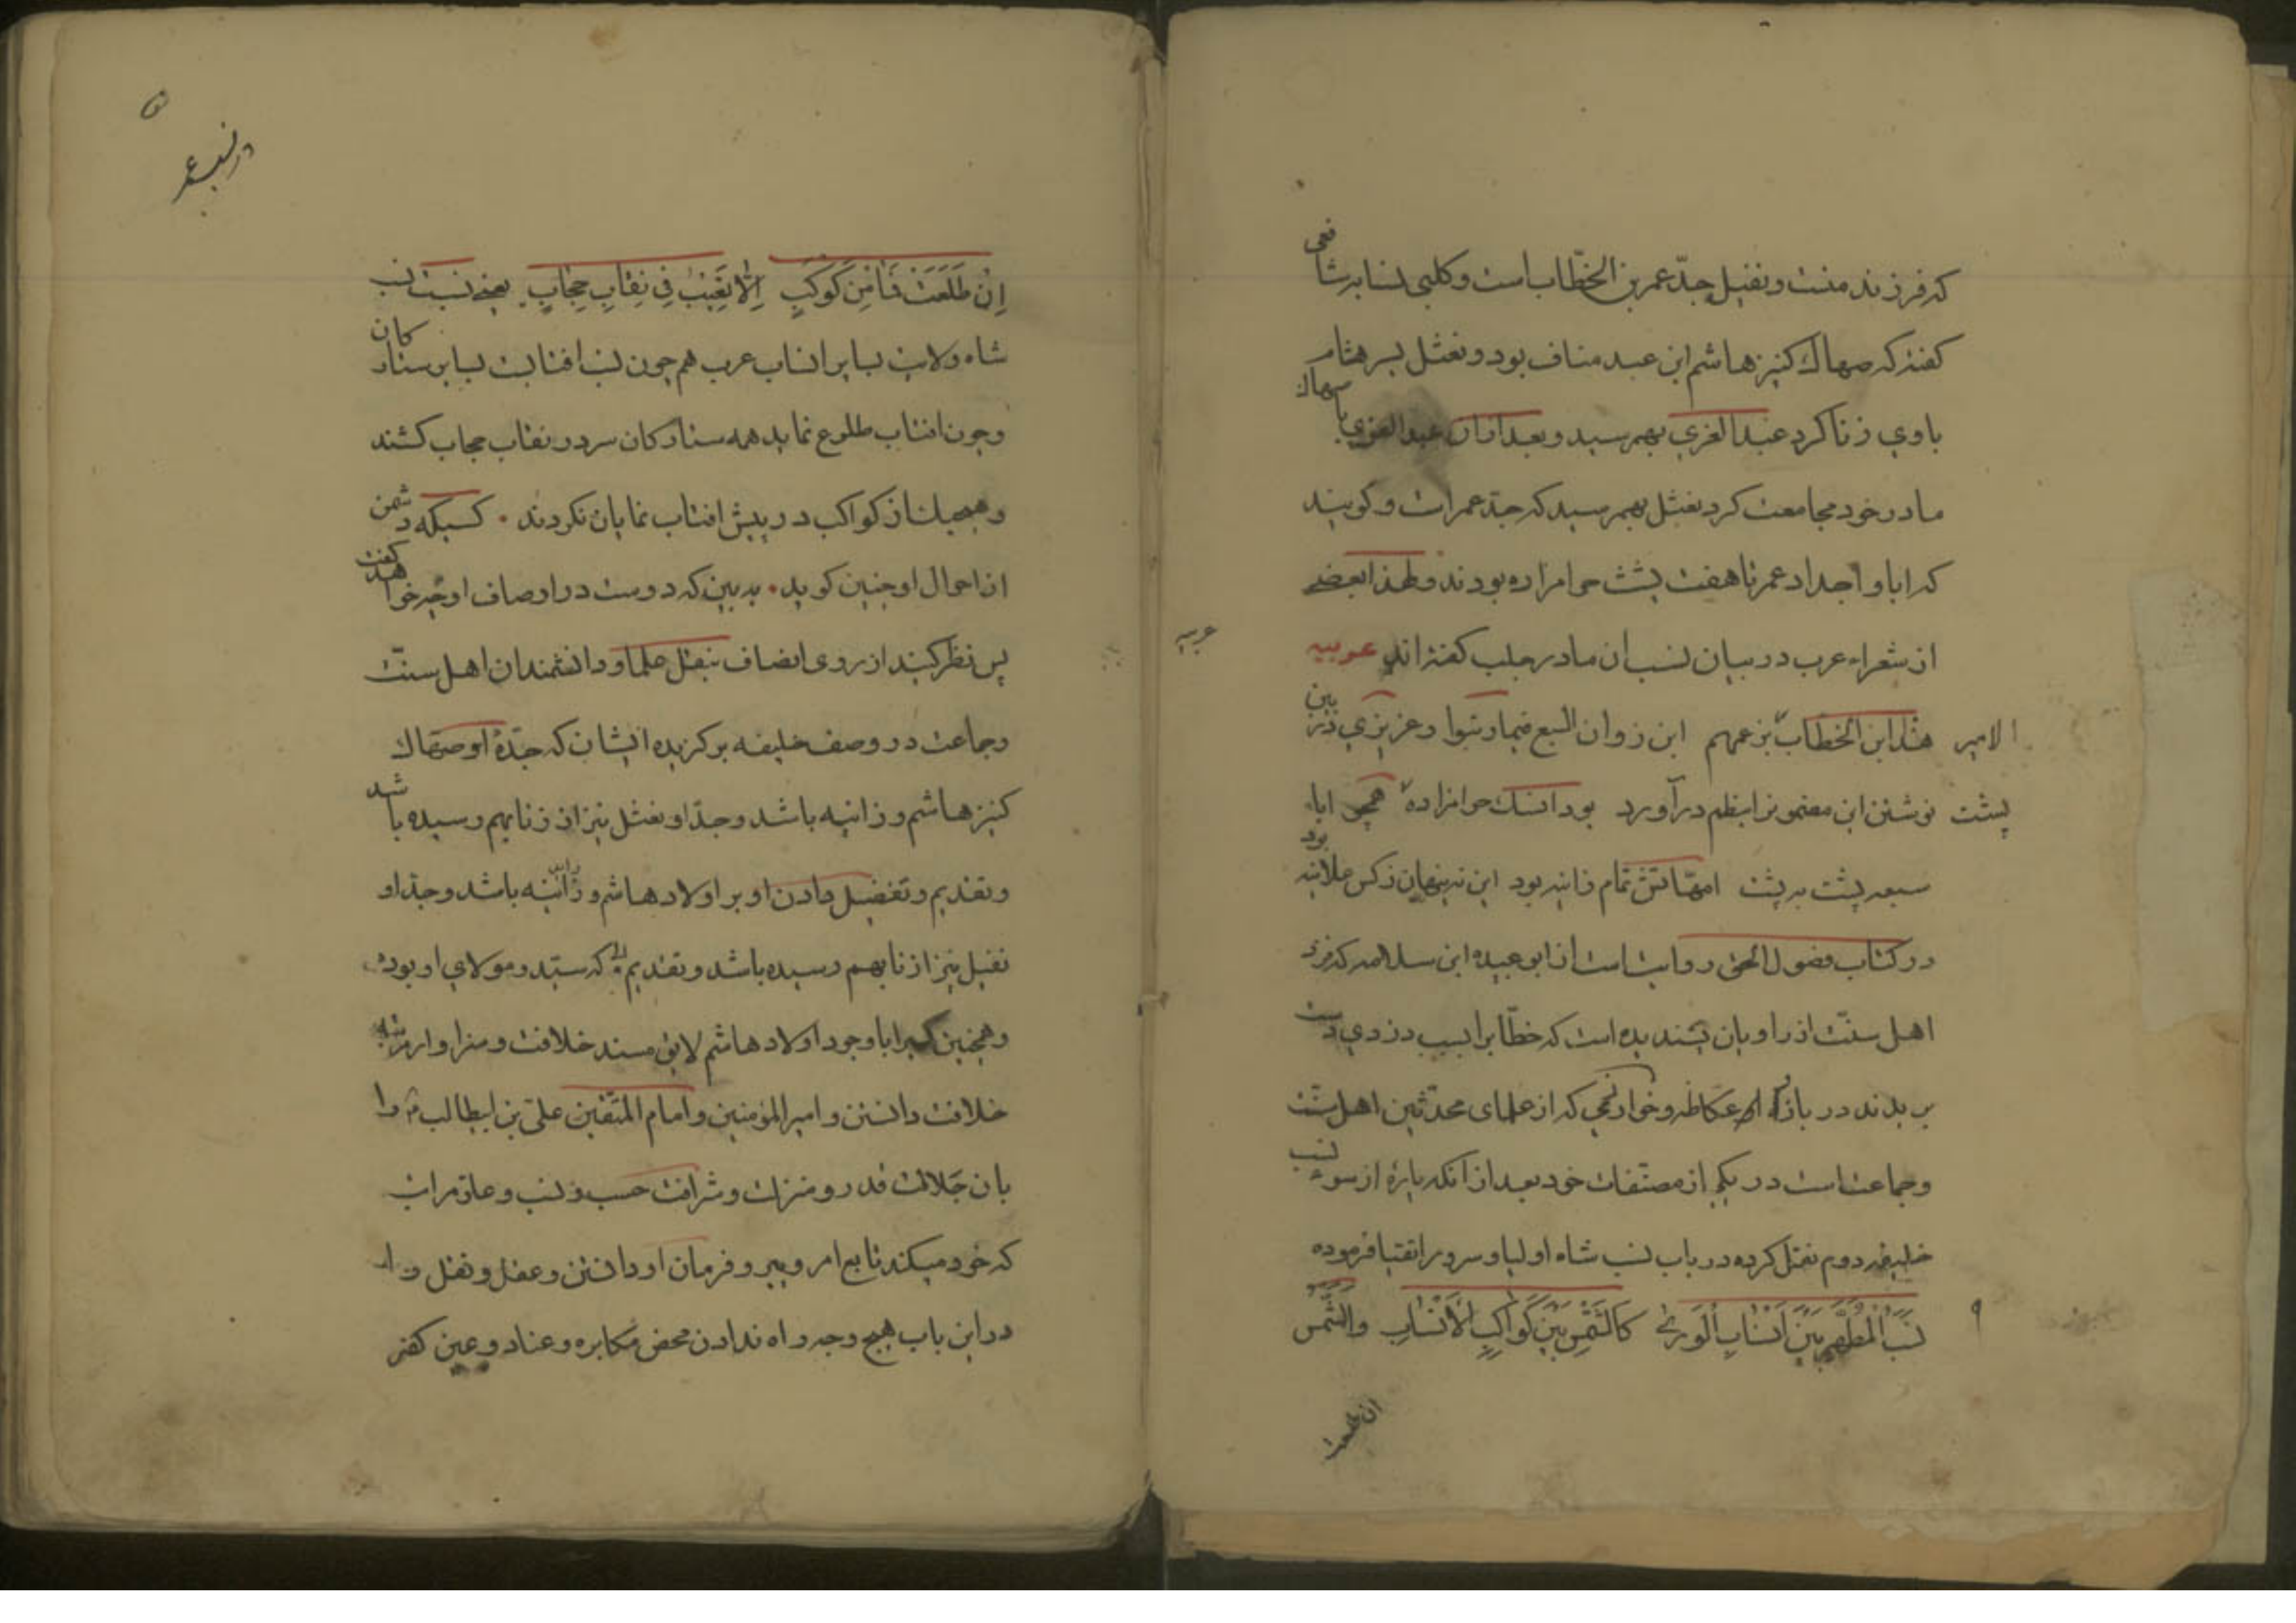 که فرزند منست و نفیل جدّ عمر بن الخطّاب است و کلبی نسابه شافعی
کفته که صهاک کنیز هاشم ابن عبد مناف بود و نغثل بسر هشام
باوی زنا کرد عبد العزی بهمرسید و بعد ازان عبد العزی با صهاک
مادر خود مجامعت کرد نغثل بهمرسید که جدّ عمر است و کویند
که ابا و اجداد عمر تا هفت پشت حرامزاده بودند و لهذا بعضے
از شعراء عرب در بیان نسب ان مادر جلب کفته اند عربیه
عربیه
الامیر هذا ابن الخطاب بن عمهم ابن زوان السبع فیما رتبوا و عزیزی در این
پشت نوشتن این مضمونرا بنظم درآورد بود انسک حرامزاده همچو اباء
سبعه پشت به پشت امهّاتش تمام زانیه بود این نه پنهان ز کس علانیه بود
در کتاب فضول الحق روایت است از ابو عبیده ابن سلامه که نزد
اهل سنّت از راویان پسندیده است که خطّابرا بسبب دزدی دست
بریدند در بازار عکاظه و خوارزمی که از علمای محدّثین اهل سنّت
و جماعت است در یکی از مصنّفات خود بعد از انکه پارهٔ از سوء نسب
خلیفه دوم نقل کرده در باب نسب شاه اولیا و سرور اتقیا فرموده
نَسَبُ الْمُطَهَّرِ بَیْنَ اَنْسَابِ الْوَریٰ کَالشَّمْسِ بَیْنَ کَوَاکِبِ الْاَنْسَابِ وَالشَّمْسُ
ان طلعت
در نسب عمر
اِنْ طَلَعَتْ فَمَا مِنْ کَوْکَبٍ اِلّا تَغَیَّبَ فِی نِقَابِ حِجَابٍ یعنے نسبت نسب
شاه ولایت بسایر انساب عرب هم چون نسبت افتابست بسایر ستارکان
و چون افتاب طلوع نماید همه ستارکان سر در نقاب حجاب کشند
و هیچیک از کواکب در پیش افتاب نمایان نکردند • کسیکه دشمن
از احوال او چنین کوید • به بین که دوست در اوصاف او چه خواهد کفت
پس نظر کنید از روی انصاف بنقل علما و دانشمندان اهل سنّت
و جماعت در وصف خلیفه برکزیده ایشان که جدّهٔ او صهّاک
کنیز هاشم و زانیه باشد و جدّ او نغثل نیز از زنا بهم رسیده باشد
و تقدیم و تفضیل دادن او بر اولاد هاشم و زانیه باشد و جدّ او
نفیل نیز از زنا بهم رسیده باشد و تقدیم که سیّد و مولای او بوده
و همچنین کسیرا با وجود اولاد هاشم لایق مسند خلافت و سزاوار مرتبه
خلافت دانستن و امیر المؤمنین و امام المتّقین علیّ بن ابیطالب را
بان جلالت قدر و منزلت و شرافت حسب و نسب و علوّ مراتب
که خود میکند تابع امر و پیرو فرمان او دانستن و عقل و نقل را
در این باب هیچ وجه راه ندادن محض مکابره و عناد و عین کفر